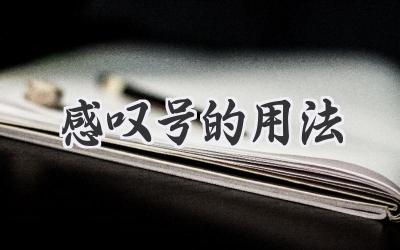 感叹号的用法